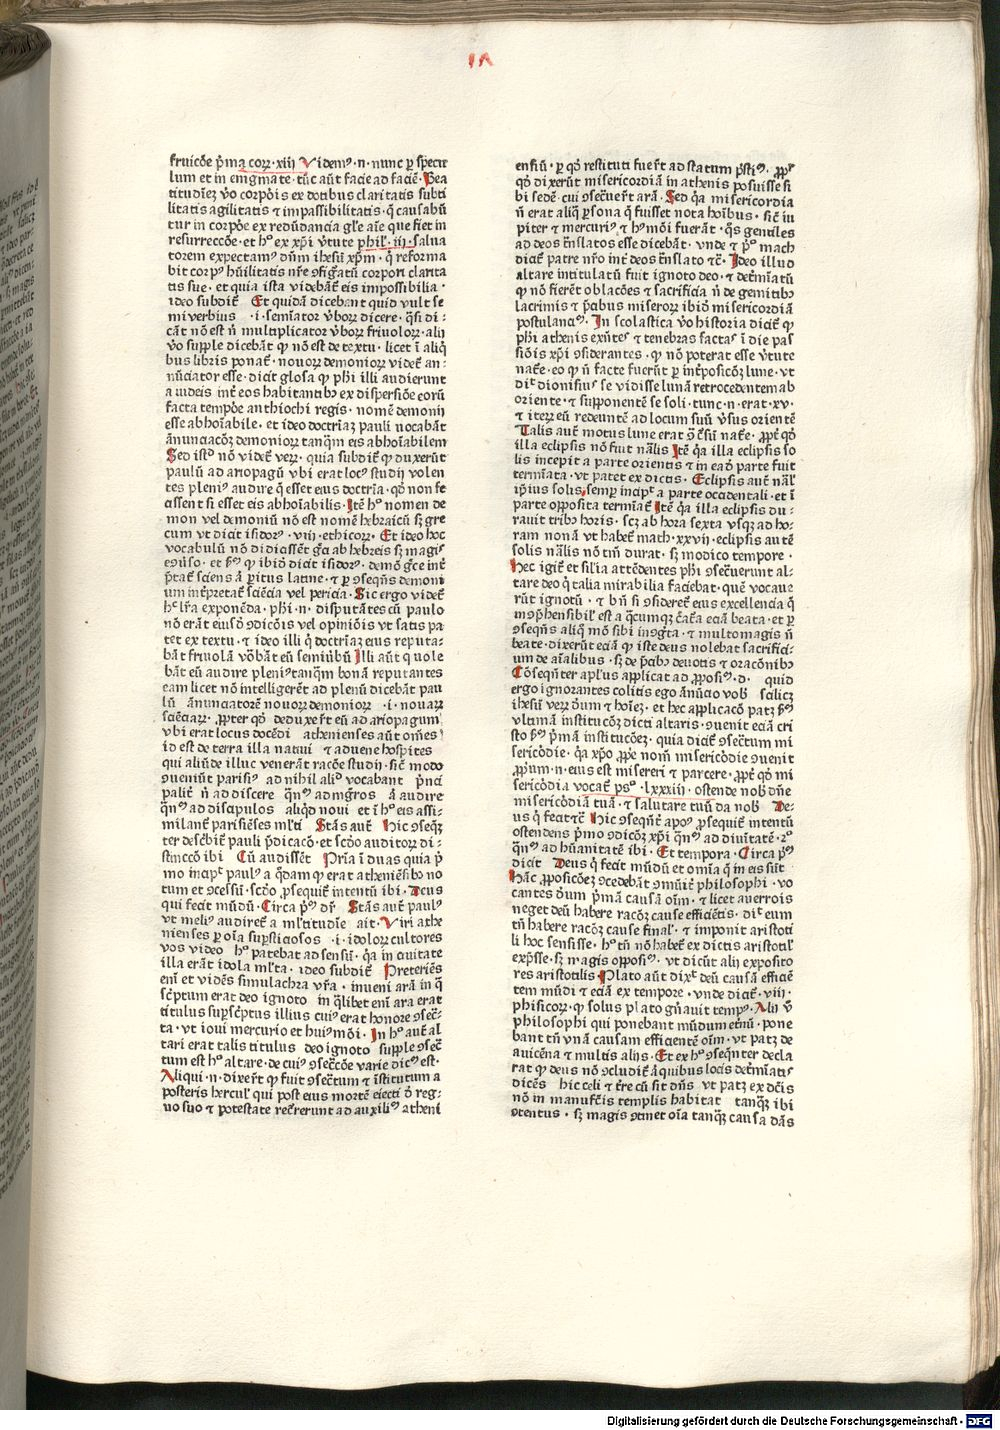 fruicōe p̄ma corꝝ·xiij Videmꝰ·n·nunc ꝑ specu
lum et in enigmate·tūc aūt facie ad faciē·Bea
titudīeꝫ v̄o corpōis ex dotibus claritatis subti
litatis agilitatis ⁊ impassibilitatis·q̄ causabū
tur in corpōe ex redūdancia gl̄e aīe que fiet in
resurreccōe·et hͦ ex xp̄i v̄tute phil'·iij·salua
torem expectamꝰ dn̄m ihesū xp̄m·q̄ reforma
bit corpꝰ hūilitatis nr̄e ꝯfigᷓtū corpori clarita
tis sue·et quia ista videbāt̄ eis impossibilia·
ideo subdit̄ Et quidā dicebant quid vult se
miverbius ·i·semīator v̄boꝝ dicere·q̄si di-
cāt nō est n̄ multiplicator v̄boꝝ friuoloꝝ·alij
v̄o supple dicebāt ꝙ nō est de textu·licet ī aliq̄
bus libris ponat̄·nouoꝝ demonioꝝ videt̄ an-
nūciator esse·dicit glosa ꝙ phi illi audierunt
a iudeis int̄ eos habitantibꝫ ex dispersiōe eorū
facta tempōe anthiochi regis·nomē demonij
esse abhoīabile·et ideo doctriāꝫ pauli vocabāt
ānunciacōꝫ demonioꝝ tanq̄m eis abhoīabilem
Sed istꝰ nō videt̄ veꝝ·quia subdit̄ ꝙ duxerūt
paulū ad ariopagū vbi erat locꝰ studij volen
tes pleniꝰ audire q̄ esset eius doctrīa·qͦd non fe
cissent si esset eis abhoīabilis·Itē hͦ nomen de
mon vel demoniū nō est nomē hebraicū sꝫ gre
cum vt dicit isidoꝝ·viij·ethicoꝝ·Et ideo hoc
vocabulū nō didicissēt gᷓca ab hebreis sꝫ magiˢ
eꝯūſo·et ſꝫ ꝙ ibiō dicit isidorꝰ·demō gᷓce int̄
p̄tat̄ sciens ā ꝑitus latine·⁊ ꝑ ꝯseqn̄s demoni
um int̄pretat̄ sciēcia vel pericia·Sic ergo videt̄
hͨ lr̄a exponēda·phi·n·disputātes cū paulo
nō erāt eiusd̄ ꝯdicōis vel opiniōis vt satis pa
tet ex textu·⁊ ideo illi q̄ doctriaꝫ eius reputa-
bāt friuolā vōbāt eū semiūbū Illi aūt q̄ uole
bāt eū audire pleniꝰtanqᷓm bonā reputantes
eam licet nō intelligerēt ad plenū dicebāt pau
lū ānunciatorē nouoꝝ demonioꝝ ·i·nouaꝝ
sciēciaꝝ·ꝓpter qͦ deduxeꝛt̄ eū ad ariopagum
vbi erat locus docēdi athenienses aūt om̄es
id est de terra illa natiui ⁊ aduene hospites
qui aliūde illuc venerāt racōe studij·sic̄ modo
ꝯueniūt parisiꝰ ad nihil aliᵈ vocabant p̄nci
palit̄ n̄ ad discere qn̄ꝰ ad mgr̄os ā audire
qn̄ꝰ ad discipulos aliqͦd noui et ī hͦ eis assi-
milant̄ parisiēses ml̄ti Stās aūt Hic ꝯseqꝫ
ter descͥbit̄ pauli p̄dicacō·et scd̄o auditoꝝ di-
stinccō ibi Cū audissēt Pria ī duas quia p̄
mo incipt̄ paulꝰ a q̄dam ꝙ erat atheniēsibꝫ no
tum et ꝯcessū·scd̄o ꝓsequit̄ intentū ibi·Deus
qui fecit mūdū·Circa p̄ᵐ dꝝ Stās aūt paulꝰ
vt meliꝰ audiret̄ a ml̄titudīe ait·Viri athe
nienses ꝑ oīa supsticiosos ·i·idoloꝝ cultores
vos video hͦ patebat ad sensū·qᷓa in ciuitate
illa erāt idola ml̄ta·ideo subdit̄ Preteriēs
eni et vidēs simulachra vr̄a·inueni arā in q̄
scͥptum erat deo ignoto in q̄libet eni ara erat
titulus supscͥptus illius cuiꝰ erat honore ꝯsec̄-
ta·vt ioui mercurio et huiꝰmōi·In hͦ aūt̄ al
tari erat talis titulus deo ignoto supple ꝯsec̄
tum est hͦ altare·de cuiꝰ ꝯsec̄cōe varie dicᵗ est·
Aliqui·n·dixer̄t ꝙ fuit ꝯsec̄tum ⁊ īstitutum a
posteris herculꝰ qui post eius mortē eiecti d̄ reg-
no suo ⁊ potestate rec̄rerunt ad auxiliꝫ athenī
ensiū·ꝑ qͦ restituti fueꝛt ad statum p̄stiꝰ·ꝓꝑᵗ
qͦ dixerūt misericordiā in athenis posuisse si
bi sedē·cui ꝯsec̄ueꝛt arā·Sed qᷓa misericordia
n̄ erat aliq̄ ꝑsona q̄ fuisset nota hoībus·sic̄ iu
piter ⁊ mercuriꝰ ⁊ hꝰmōi fuerāt·qͦs gentiles
ad deos t̄nslatos esse dicebāt·vnde ⁊ p̄º mach
dicit̄ patre nr̄o int̄ deos t̄nslato ⁊c̄·Ideo illud
altare intitulatū fuit ignoto deo·⁊ det̄mīatū
ꝙ nō fierēt oblacōes ⁊ sacrificia n̄ de gemitibꝫ
lacrimis ⁊ p̄cibus miseroꝝ ibiō misericordiā
postulanciū·In scolastica v̄o historia dicit̄ ꝙ
phi athenis exn̄tes ⁊ tenebras factas ī die pas
siōis xp̄i ꝯsiderantes·ꝙ nō poterat esse v̄tute
nat̄e·eo ꝙ n̄ facte fuerūt ꝑ int̄posicōꝫ lune·vt
dicͭ dionisiuˢ se vidisse lunā retrocedentem ab
oriente·⁊ supponentē se soli·tunc·n·erat·xv·
⁊ iteꝝ eū redeuntē ad locum suū v̄sus orientē
Talis aūt̄ motus lune erat ꝯ cͥsū nat̄e·ꝓpt̄ qͦ
illa eclipsis nō fuit nālis Itē qᷓa illa eclipsis so
lis incepit a parte orientis ⁊ in ead̄ parte fuit
termīata·vt patet ex dictis·Eclipsis aūt nāl'
ip̄ius solis semꝑ incipᵗ a parte occidentali·et ī
parte opposita termīat̄ Itē qᷓa illa eclipsis du-
rauit tribꝫ horis·scꝫ ab hora sexta vsqꝫ ad ho-
ram nonā vt habet̄ math·xxvij·eclipsis aūtē
solis nālis nō tm̄ durat·sꝫ modico tempore·
Hec igit̄ et silīa attēdentes phi ꝯsec̄uerunt al-
tare deo q̄ talia mirabilia faciebat·quē vocaue
rūt ignotū·⁊ bn̄ si ꝯsideret̄ eius excellencia q̄
incōp̄hensibil' est a q̄cumqꝫ cͥat̄a eciā beata·et ꝑ
ꝯseqn̄s aliq̄ mō sibi inꝯgᷓta·⁊ multomagis n̄
beate·dixerūt eciā ꝙ iste deus nolebat sacrifici-
um de aīalibus·sꝫ de p̄cibꝫ deuotis ⁊ oracōnibꝫ
Cōseqn̄ter apl̄us applicat ad ꝓposiᵐ·d· quid
ergo ignorantes colitis ego ānūcio vob̄ salicꝫ
ihesū veꝝ d̄um ⁊ hoīeꝫ·et hec applicacō patꝫ ſꝫ
vltimā institucōꝫ dicti altaris·ꝯuenit eciā cri
sto ſꝫ p̄mā institucōeꝫ·quia dicit̄ ꝯsec̄tum mi
sericōdie·qᷓa xp̄o ꝓpᵉ nom̄ misericōdie ꝯuenit
ꝓpꝛium·n·eius est misereri ⁊ parcere·ꝓpt̄ qͦ mi
sericōdia vocat̄ psº·lxxxiij·ostende nob̄ dn̄e
misericōdiā tuā·⁊ salutare tuū da nob̄ De-
us q̄ fecit ⁊c̄ Hic ꝯseqn̄t̄ apoꝰ ꝓsequit̄ intentū
ostendens p̄mo ꝯdicōꝫ xp̄i qn̄ꝰ ad diuītatē·2º
qn̄ꝰ ad hūanitatē ibi·Et tempora·Circa p̄ᵐ
dicit Deus q̄ fecit mūdū et omīa q̄ in eis sūt
Hāc ꝓposicōeꝫ ꝯcedebāt ꝯmūit̄ philosophi·vo
cantes d̄um p̄mā causā oīm·⁊ licet auerrois
neget deū habere racōꝫ cause efficiētis·dicͭ eum
tn̄ habere racōꝫ cause final'·⁊ imponit aristoti
li hoc sensisse·hͦ tn̄ nō habet̄ ex dictis aristotil'
exp̄sse·sꝫ magis opposiᵐ·vt dicūt alij exposito
res aristotilis·Plato aūt dixͭ deū causā efficiē
tem mūdi ⁊ eciā ex tempore·vnde dicit̄·viij·
phisicoꝝ·ꝙ solus plato gn̄auit tempꝰ·Alij v̄
philosophi qui ponebant mūdum et̄nū·pone
bant tn̄ vnā causam efficientē oīm·vt patꝫ de
auicēna ⁊ multis alijs·Et ex hͦ ꝯseqn̄ter decla
rat ꝙ deus nō ꝯcludit̄ āquibus locis det̄mīatiˢ
dicēs hic celi ⁊ t̄re cū sit dn̄s vt patꝫ ex dcīs
nō in manufc̄īs templis habitat tanqᷓꝫ ibi
ꝯtentus·sꝫ magis ꝯtinet oīa tanqᷓꝫ causa dās
Digitalisierung gefördert durch die Deutsche Forschungsgemeinschaft - DFG